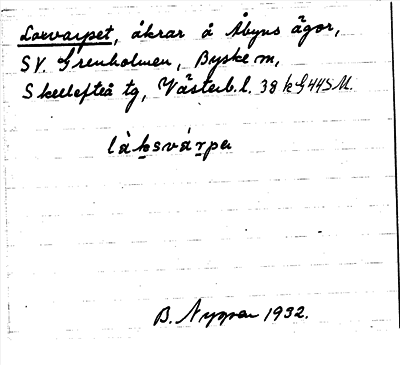 Laxvarpet, åkrar å Åbyns ägor,
SV. Grenholmen, Byske sn,
Skellefteå tg, Västerb. l. 38 k G 44 SM.
làksvárpə
B. Nygren 1932.